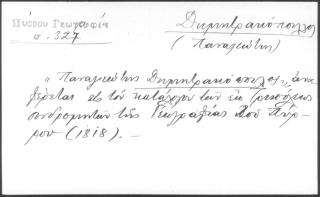 Πύρρου Γεωγραφία
σ. 327
Δημητρακόπουλος
(Παναγιώτης)
"Παναγιώτης Δημητρακόπουλος", ἀνα-
φέρεται εἰς τὸν κατάλογον τῶν ἐκ Τριπόλεως
συνδρομητῶν τῆς Γεωγραφίας τοῦ Πύρ-
ρου (1818). —